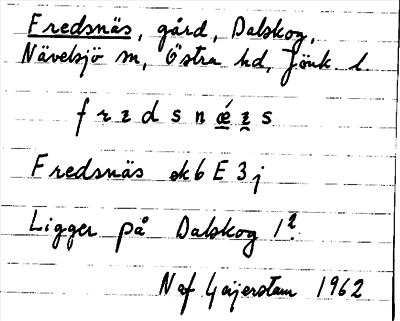 Fredsnäs, gård, Dalskog,
Nävelsjö sn, Östra hd, Jönk. l.
f r ɛ d s n ǽ ɛ s
Fredsnäs ek 6 E 3 j
Ligger på Dalskog 1²
Naf Geijerstam 1962